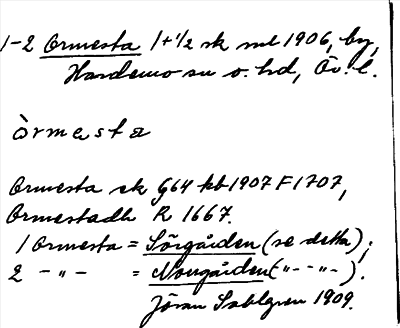 1-2 Ormesta 1+1/2 sk ml 1906, by,
Hardemo sn o. hd, Ör. l.
òrmesta
Ormesta sk G64 kb 1907 F 1707,
Ormestadh R 1667.
1 Ormesta = Sörgården (se detta);
2 - " - = Norrgården (" - " - ).
Jöran Sahlgren 1909.